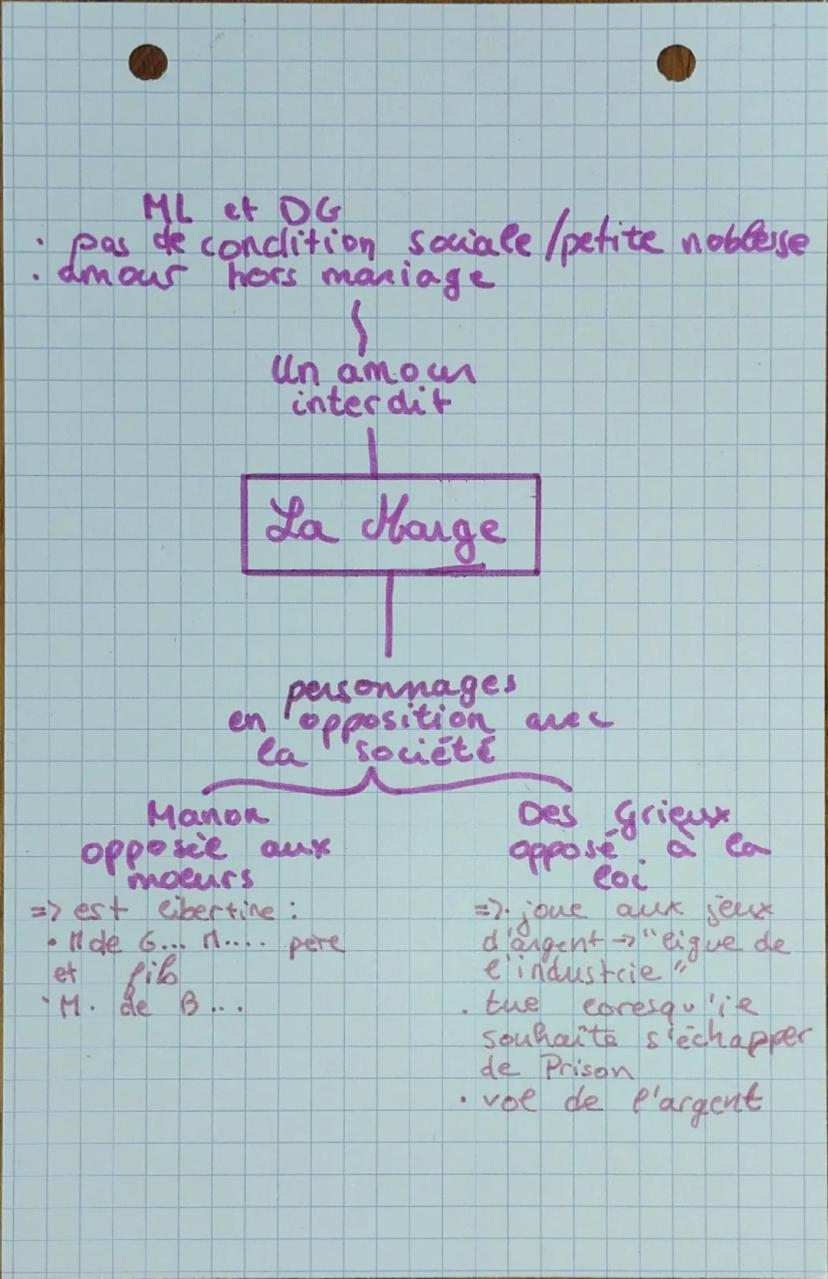 ML et DG
. pas de condition sociale/petite noblesse
. amour hors mariage
Un amour
interdit
La Marge
personnages
en opposition avec
la société
Manon
opposée aux
moeurs
=> est libertine :
• M de G... M.... père
et fils
• M. de B...
Des Grieux
opposé à la
loi
=>. joue aux jeux
d'argent -> "ligue de
l'industrie"
. tue loresqu'il
souhaite s'échapper
de Prison
• vol de l'argent